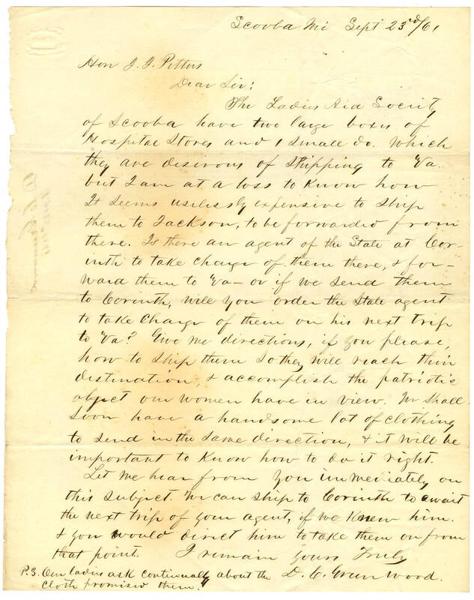 Scooba Mi Sept 23d/61
Hon J. J. Pettus
Dear Sir:
The Ladies Aid Society
of Scooba have two large boxes of
Hospital Stores and 1 Small do. Which
they are desirous of Shipping to Va.
but I am at a loss to Know how
It seems uselessly expensive to Ship
them to Jackson, to be forwarded from
there. Is there an agent of the State at Cor-
inth to take Charge of them there, & for-
ward them to Va— or if we send them
to Corinth, will you order the State agent
to take Charge of them on his next trip
to Va? Give me directions, if you please,
how to Ship them so they will reach their
destination, & accomplish the patriotic
object our women have in view. We Shall
Soon have a handsome lot of clothing
to send in the same direction, & it will be
important to Know how to do it right.
Let me hear from You immediately on
this Subject. We can Ship to Corinth to await
the next trip of your agent, if we Knew him.
& you would direct him to take them on from
that point. I remain Yours Truly
P.S. Our ladies ask continually about the D. C. Greenwood.
Cloth promised them.